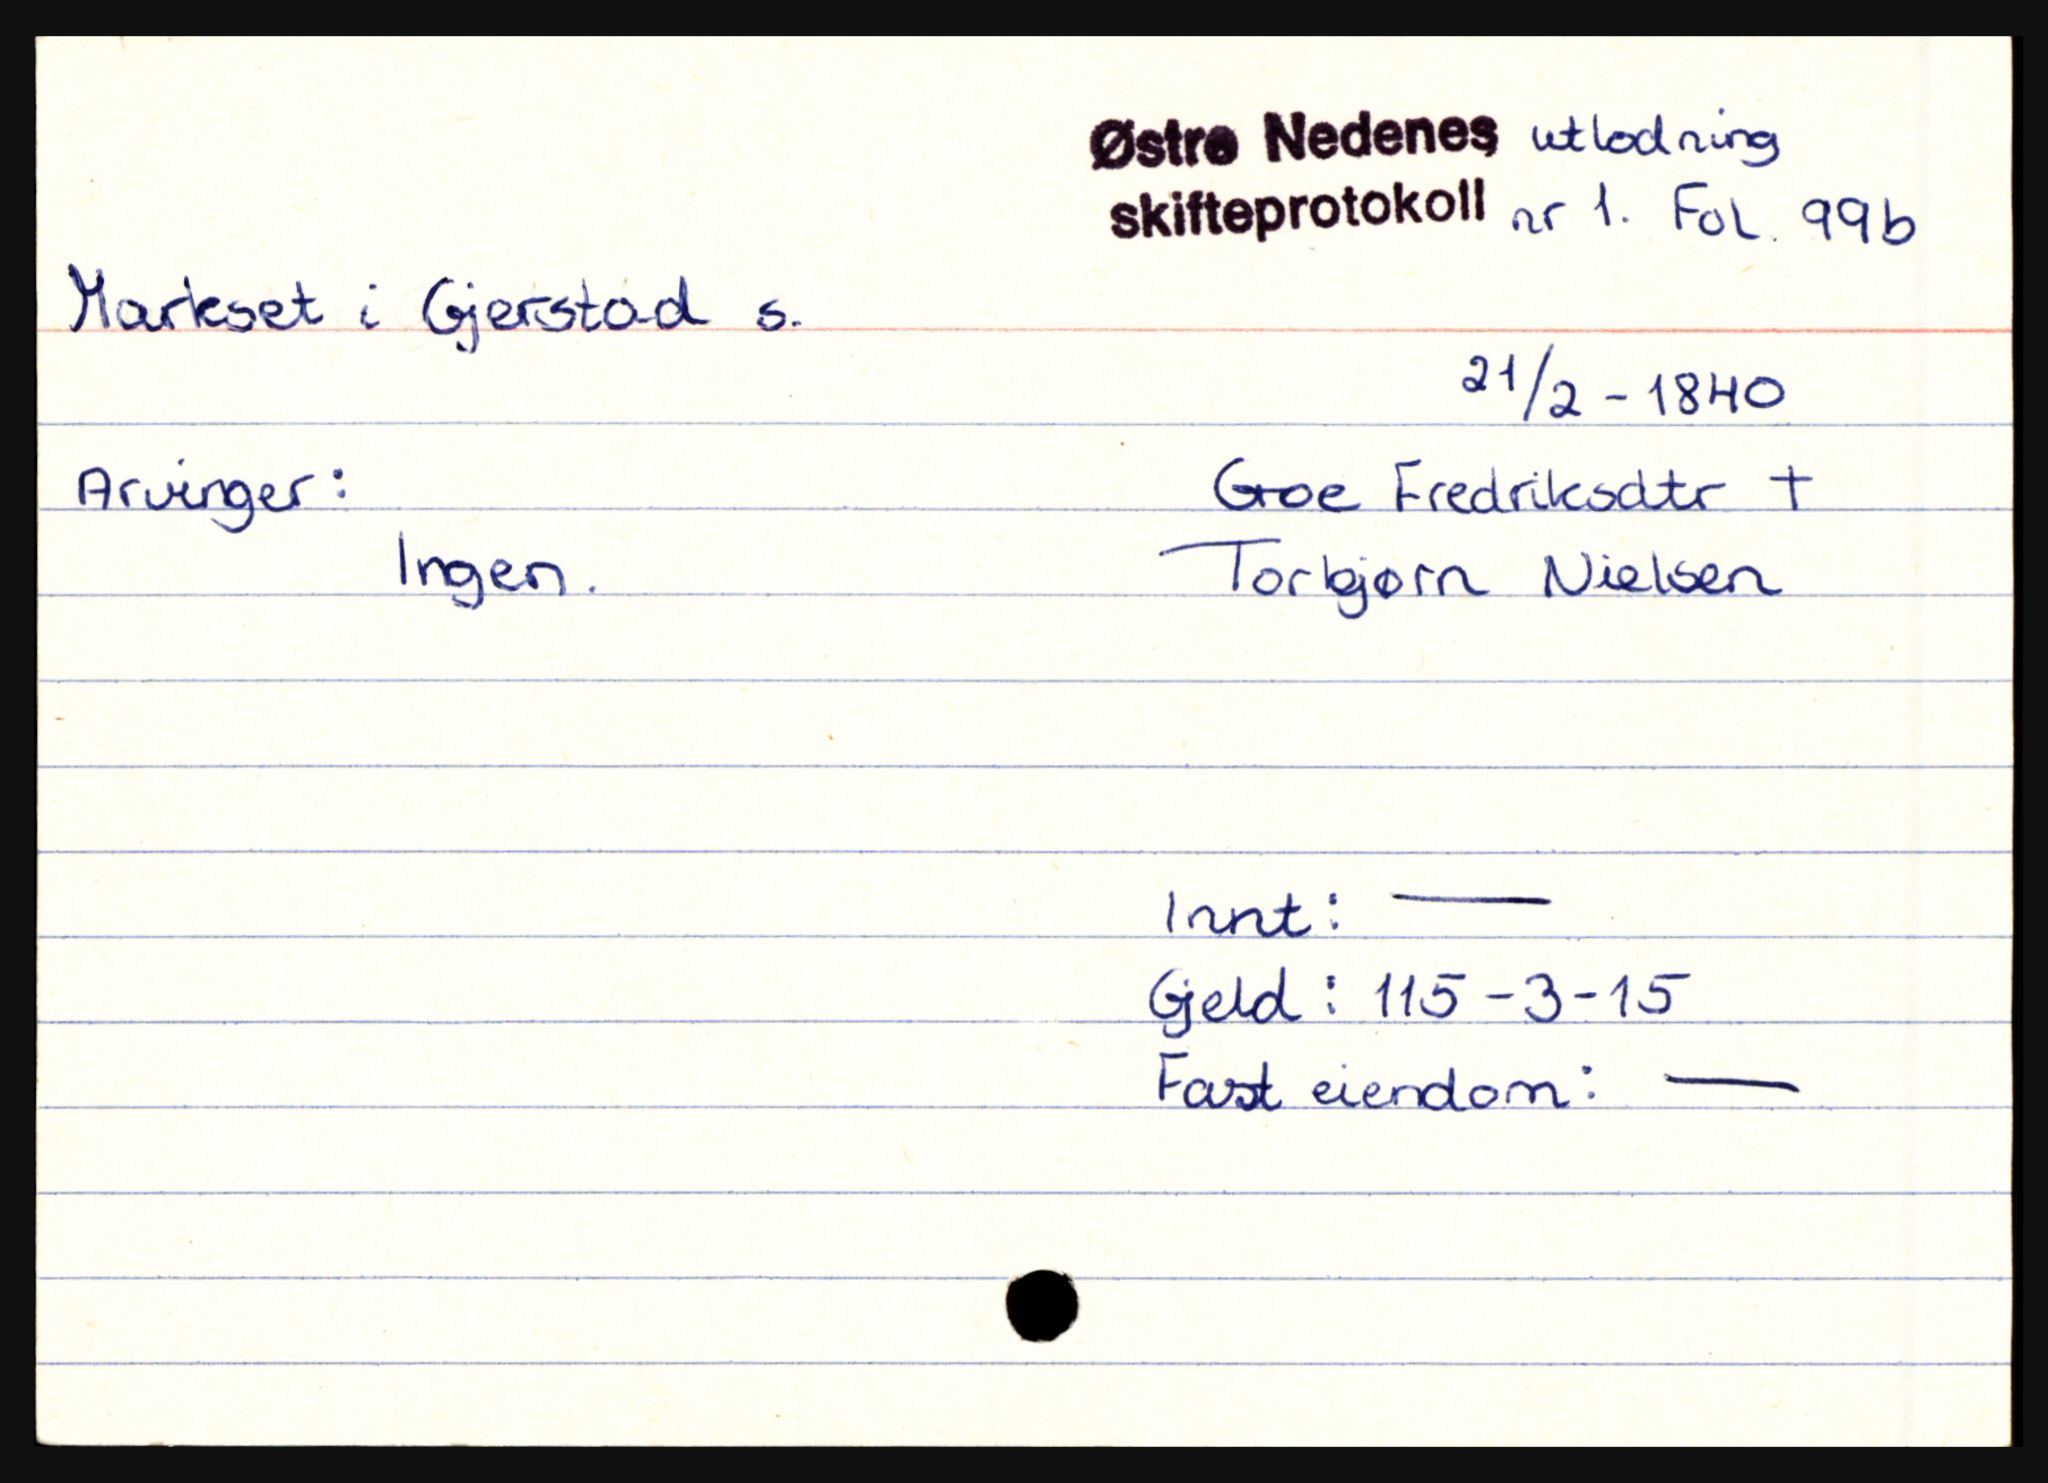 Østre Nedenes utlodning
skifteprotokoll nr 1. Fol. 99b
Markset i Gjerstad s.
21/2 - 1840
Arvinger:
Ingen.
Groe Fredriksdtr +
Torbjørn Nielsen
Innt: —
Gjeld: 115-3-15
Fast eiendom: —